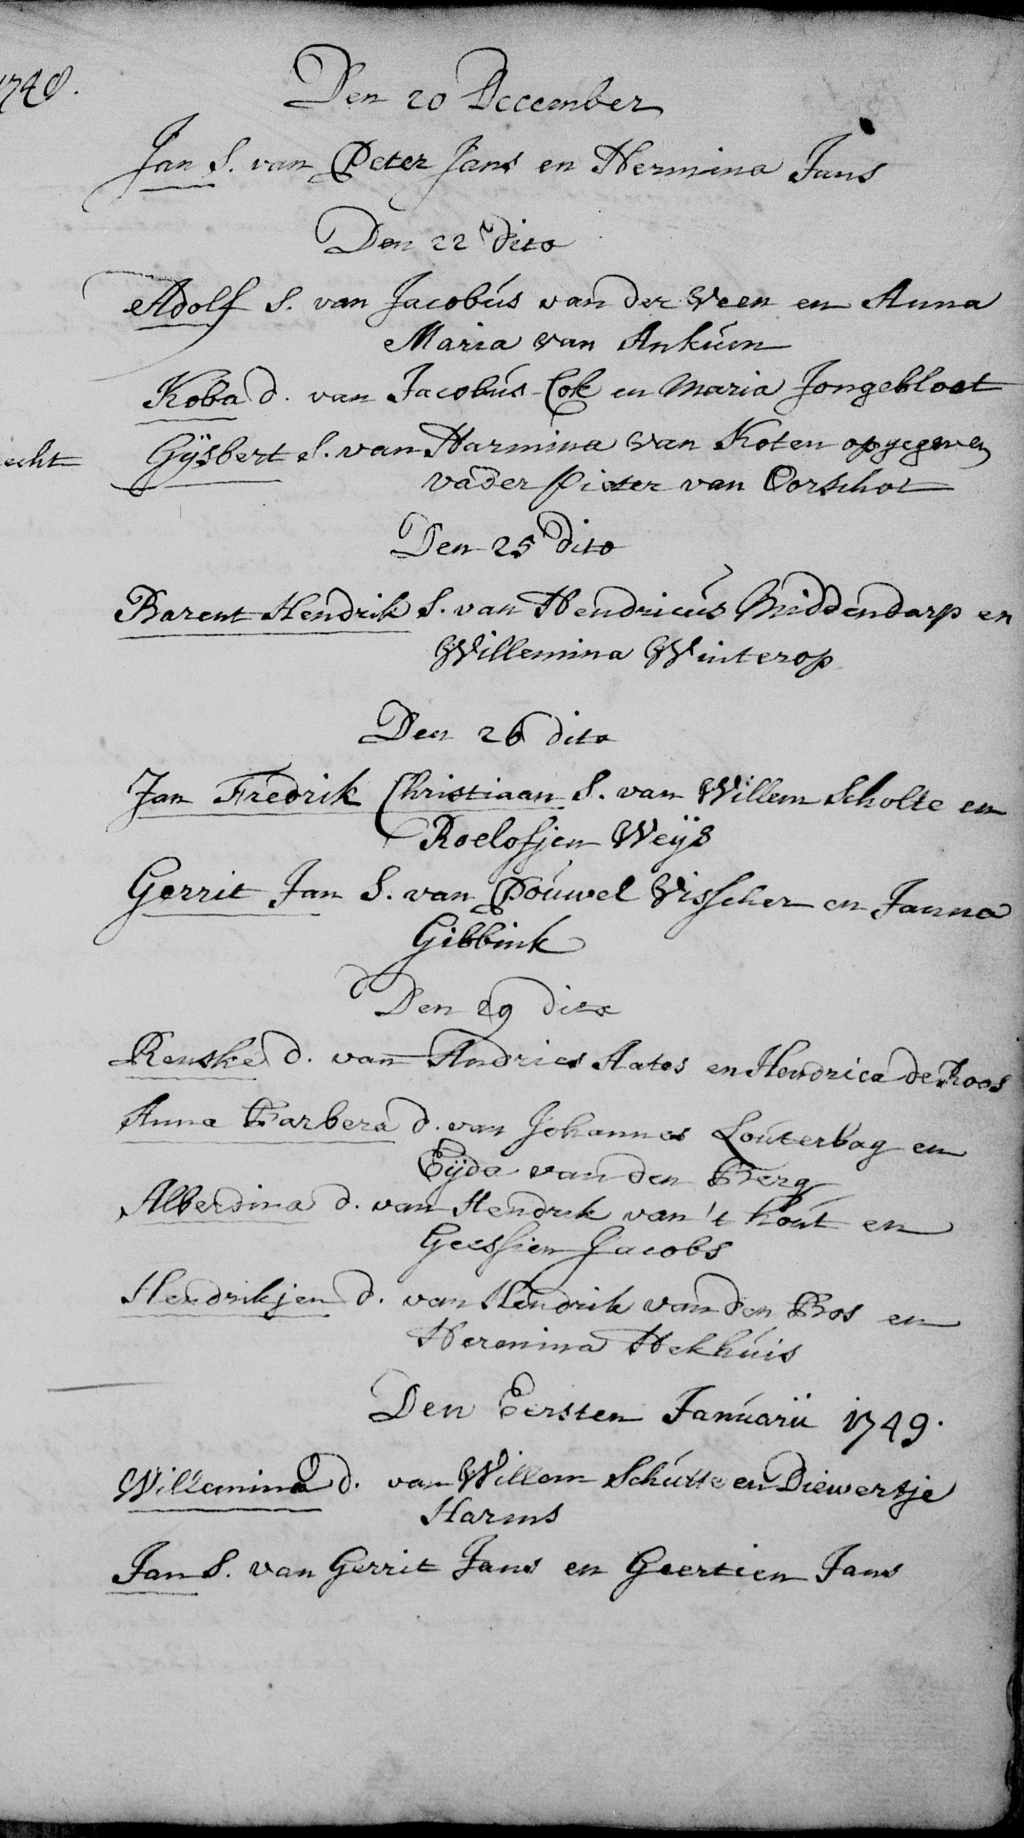 1748.
Den 20 December
Jan S. van Peter Jans en Hermina Jans
Den 22 dito
Adolf S. van Jacobús van der Veen en Anna
Maria van Ankúm
Koba d. van Jacobús Cok en Maria Jongebloet
echt Gÿsbert S. van Harmina van Koten opgegeven
vader Pieter van Oorschot
Den 25 dito
Barent Hendrik S. van Hendricús Middendarp en
Willemina Winterop
Den 26 dito
Jan Fredrik Christiaan S. van Willem Scholte en
Roelofjen Weÿs
Gerrit Jan S. van Poúwel Visscher en Janna
Gibbink
Den 29 dito
Renske d. van Andries Aatos en Hendrica de Roos
Anna Barbera d. van Johannes Loúterbag en
Eÿda van den Berg
Alberdina d. van Hendrik van 't hoút en
Geessien Jacobs
Hendrikjen d. van Hendrik van den Bos en
Hermina Hekhúis
Den Eersten Janúarii 1749.
Willemina d. van Willem Schútte en Diewertje
Harms
Jan S. van Gerrit Jans en Geertien Jans